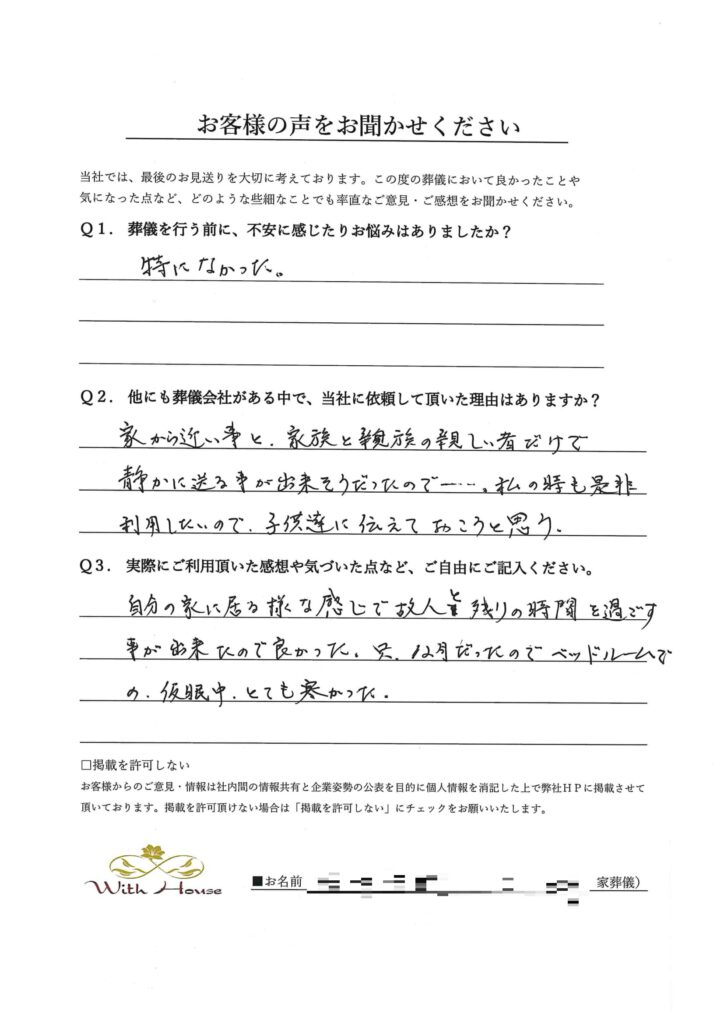 お客様の声をお聞かせください
当社では、最後のお見送りを大切に考えております。この度の葬儀において良かったことや
気になった点など、どのような些細なことでも率直なご意見・ご感想をお聞かせください。
Q1. 葬儀を行う前に、不安に感じたりお悩みはありましたか？
特になかった。
Q2. 他にも葬儀会社がある中で、当社に依頼して頂いた理由はありますか？
家から近い事と、家族と親族の親しい者だけで
静かに送る事が出来そうだったので……。私の時も是非
利用したいので、子供達に伝えておこうと思う。
Q3. 実際にご利用頂いた感想や気づいた点など、ご自由にご記入ください。
自分の家に居る様な感じで故人と残りの時間を過ごす
事が出来たので良かった。只、12月だったのでベッドルームで
の、仮眠中、とても寒かった。
□掲載を許可しない
お客様からのご意見・情報は社内間の情報共有と企業姿勢の公表を目的に個人情報を消記した上で弊社HPに掲載させて
頂いております。掲載を許可頂けない場合は「掲載を許可しない」にチェックをお願いいたします。
With House
■お名前 家葬儀）